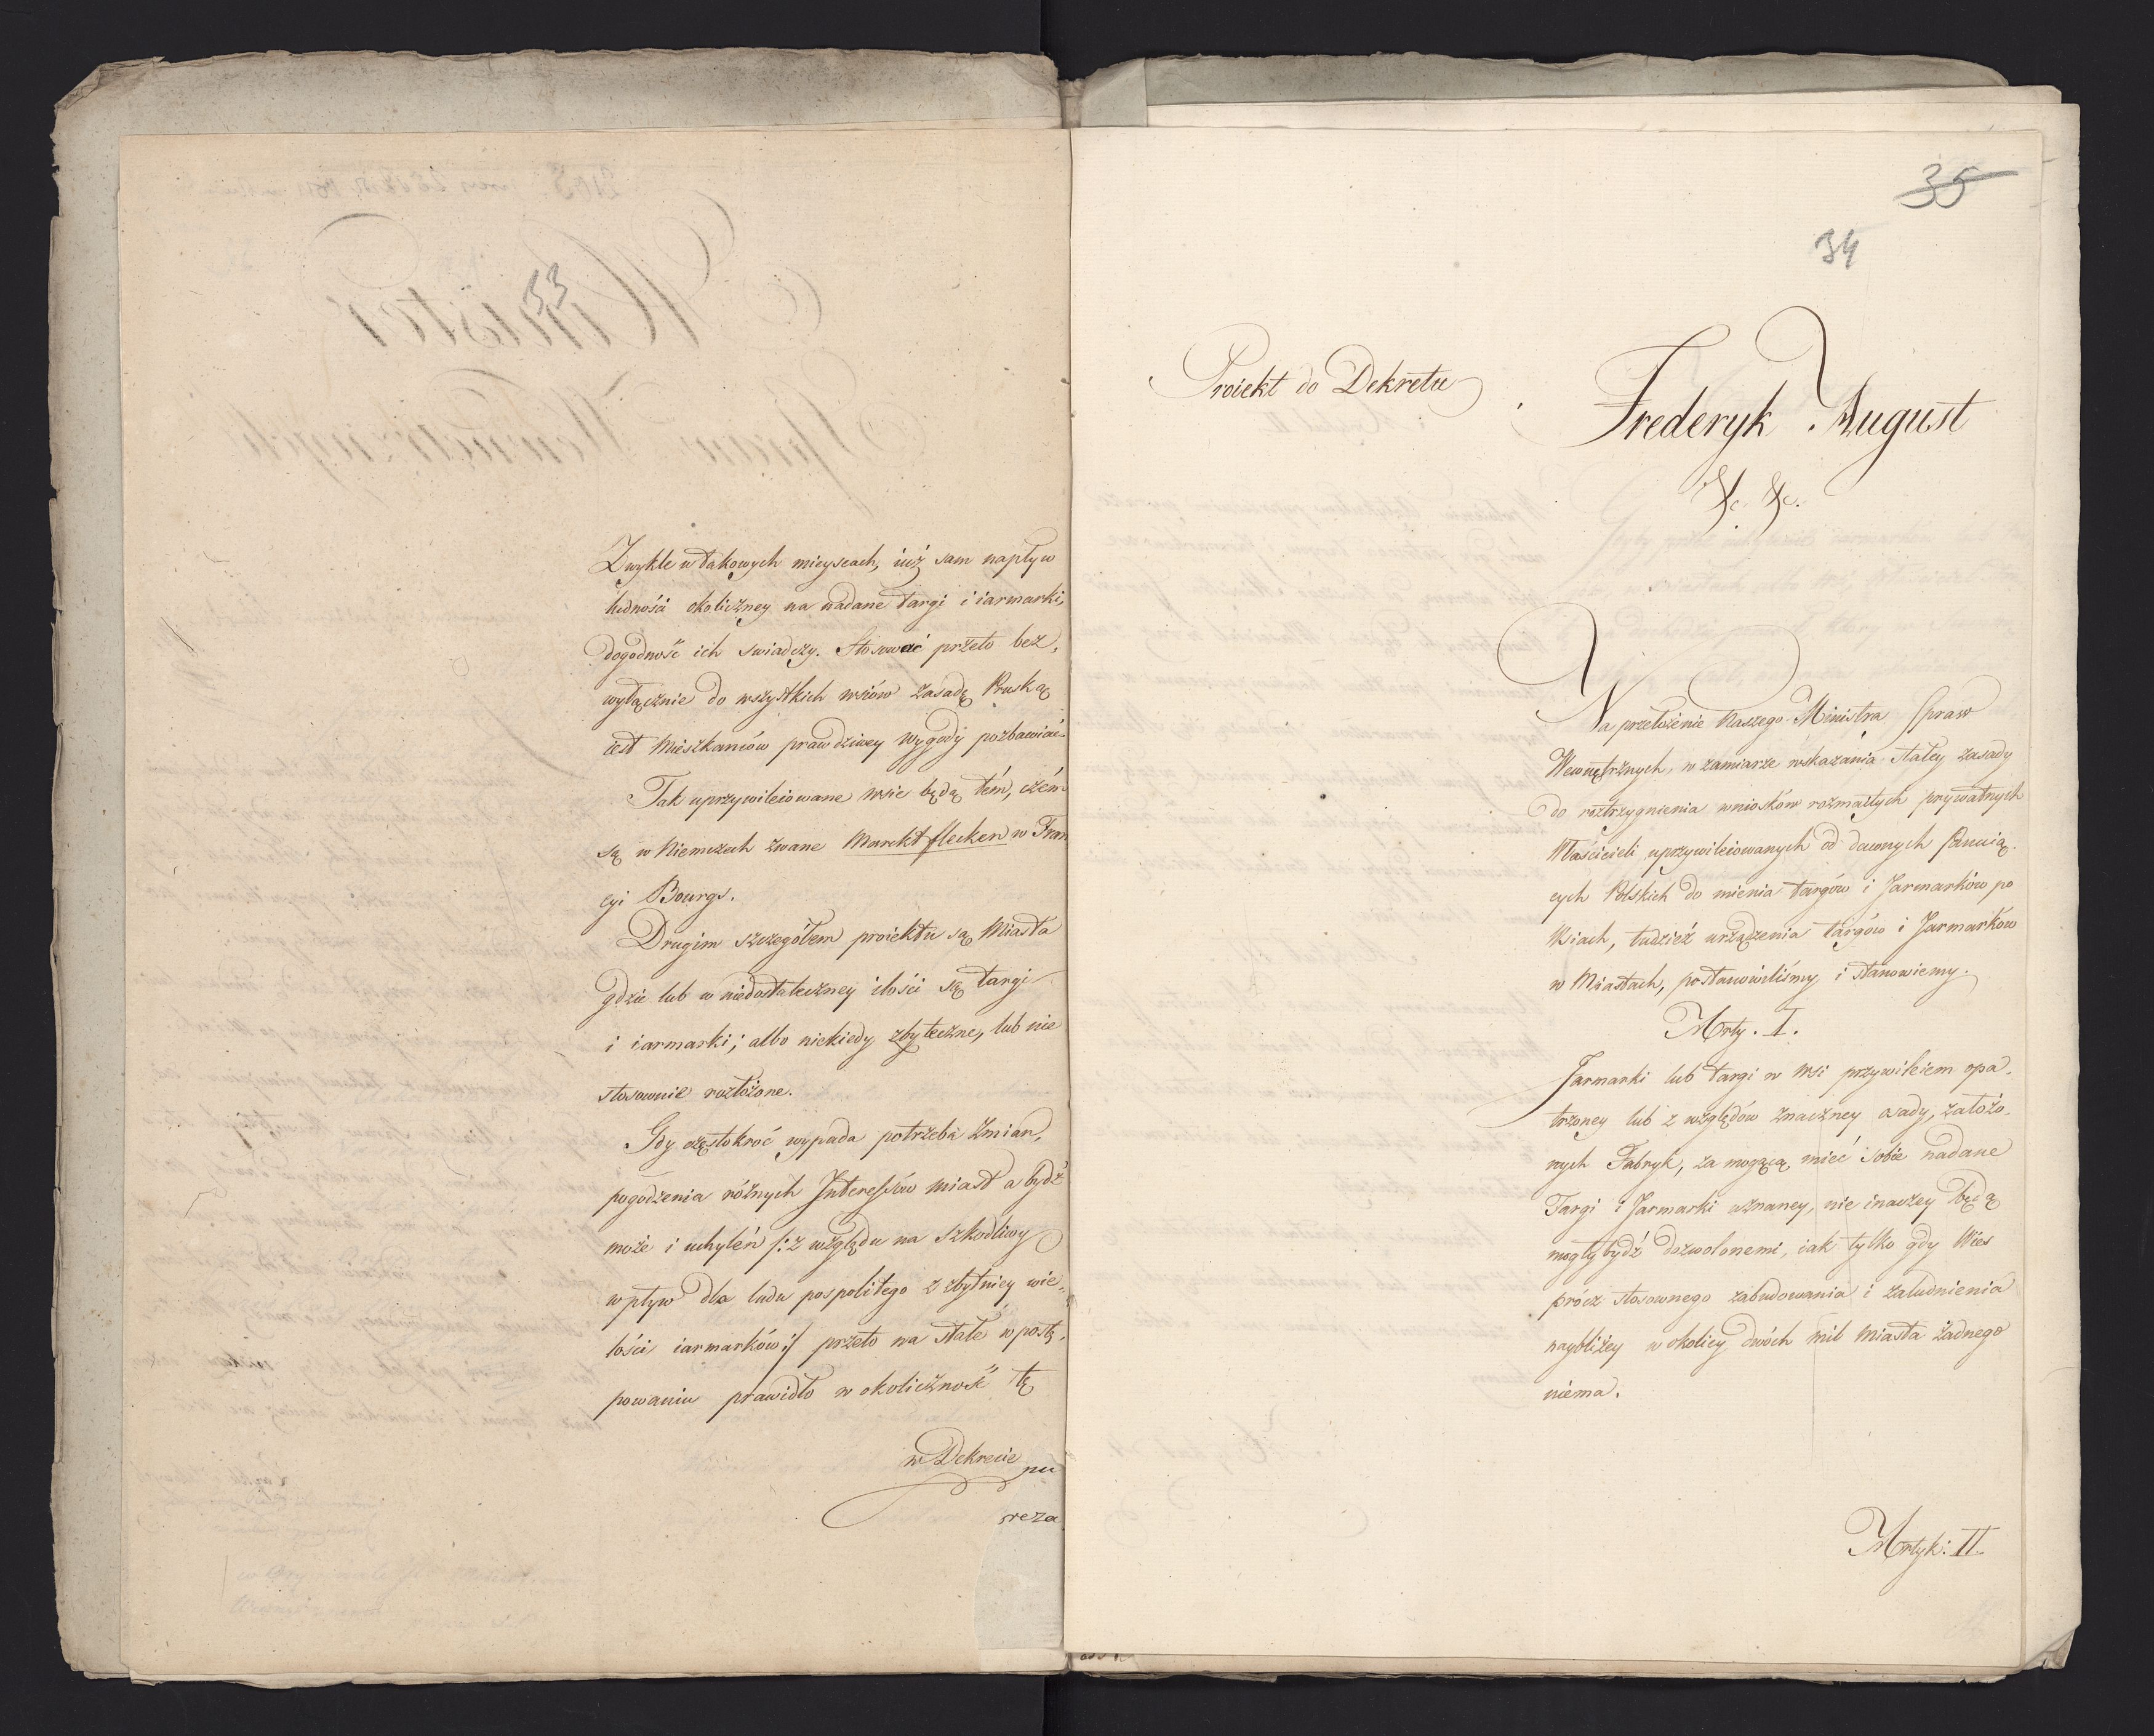 33
Zwykle w takowych mieyscach, iuż sam napływ
ludności okoliczney na nadane targi i iarmarki,
dogodność ich swiadczy. Stosować przeto bez,
wyłącznie do wszystkich wsiów zasadę Pruską
iest Mieszkańców prawdziwey wygody pozbawiać.
Tak uprzywileiowane wsie będą tém, czém
są w Niemczech zwane Marktflecken w Fran
cyi Bourgs.
Drugim szczegółem proiektu są Miasta
gdzie lub w niedostateczney ilości są targi
i iarmarki; albo niekiedy zbyteczne, lub nie
stosownie rozłożone.
Gdy częstokroć wypada potrzeba zmian,
pogodzenia różnych Interessów miast a bydź
może i uchyleń /: z względu na szkodliwy
wpływ dla ludu pospolitego z zbytniey wie,
lości iarmarków :/ przeto na stałe w postę,
powaniu prawidło w okoliczność tę
w Dekrecie
pu
sreza
35
34
Proiekt do Dekretu
Frederyk August
&c. &c.
Na przełożenie Naszego Ministra Spraw
Wewnętrznych, w zamiarze wskazania stałey zasady
do roztrzygnienia wniosków rozmaitych prywatnych
Właścicieli uprzywileiowanych od dawnych Panuią,
cych Polskich do mienia targów i Jarmarków po
Wsiach, tudzież urządzenia targów i Jarmarków
w Miastach, postanowiliśmy i stanowiemy.
Arty. I.
Jarmarki lub targi w wsi przywileiem opa,
trzoney lub z względów znaczney osady, założo,
nych Fabryk, za mogącą mieć sobie nadane
Targi i Jarmarki uznaney, nie inaczey będą
mogły bydź dozwolonemi, iak tylko gdy Wies
prócz stosownego zabudowania i zaludnienia
naybliżey w okolicy dwóch mil Miasta żadnego
niema.
Artyk: II.